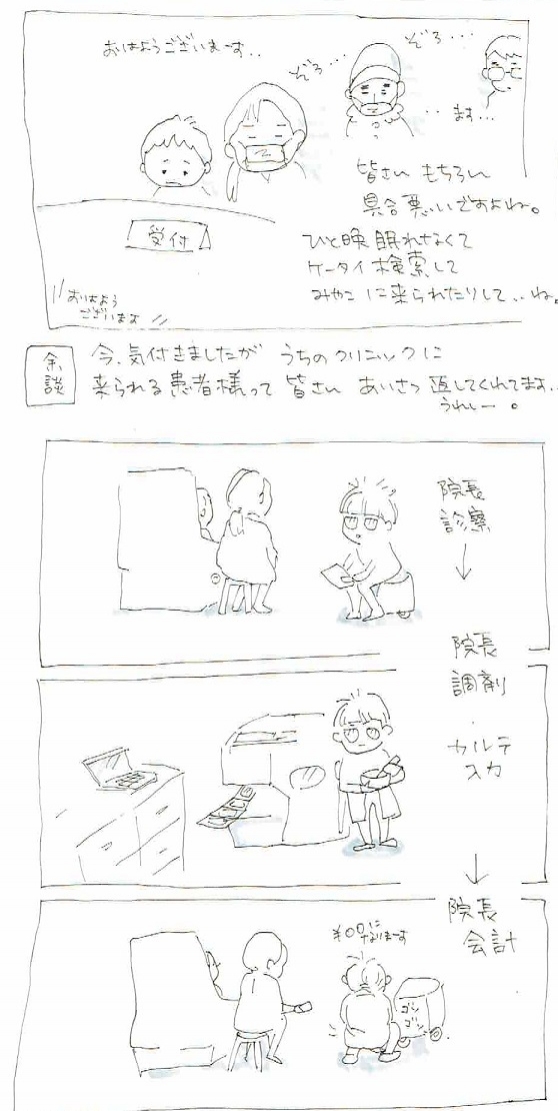 おはようございまーす‥
ぞろ・・・
ぞろ・・・
‥ます‥
皆さん もちろん
具合悪いですよね。
ひと晩眠れなくて
ケータイ検索して
みやこに来られたりして‥ね。
受付
おはよう
ございます
余談
今、気付きましたが うちのクリニックに
来られる患者様って 皆さん あいさつ 返してくれてます‥
うれしー。
院長
診察
↓
院長
調剤
・
カルテ
入力
↓
院長
会計
¥〇〇に
なりまーす
ゴン
ゴン